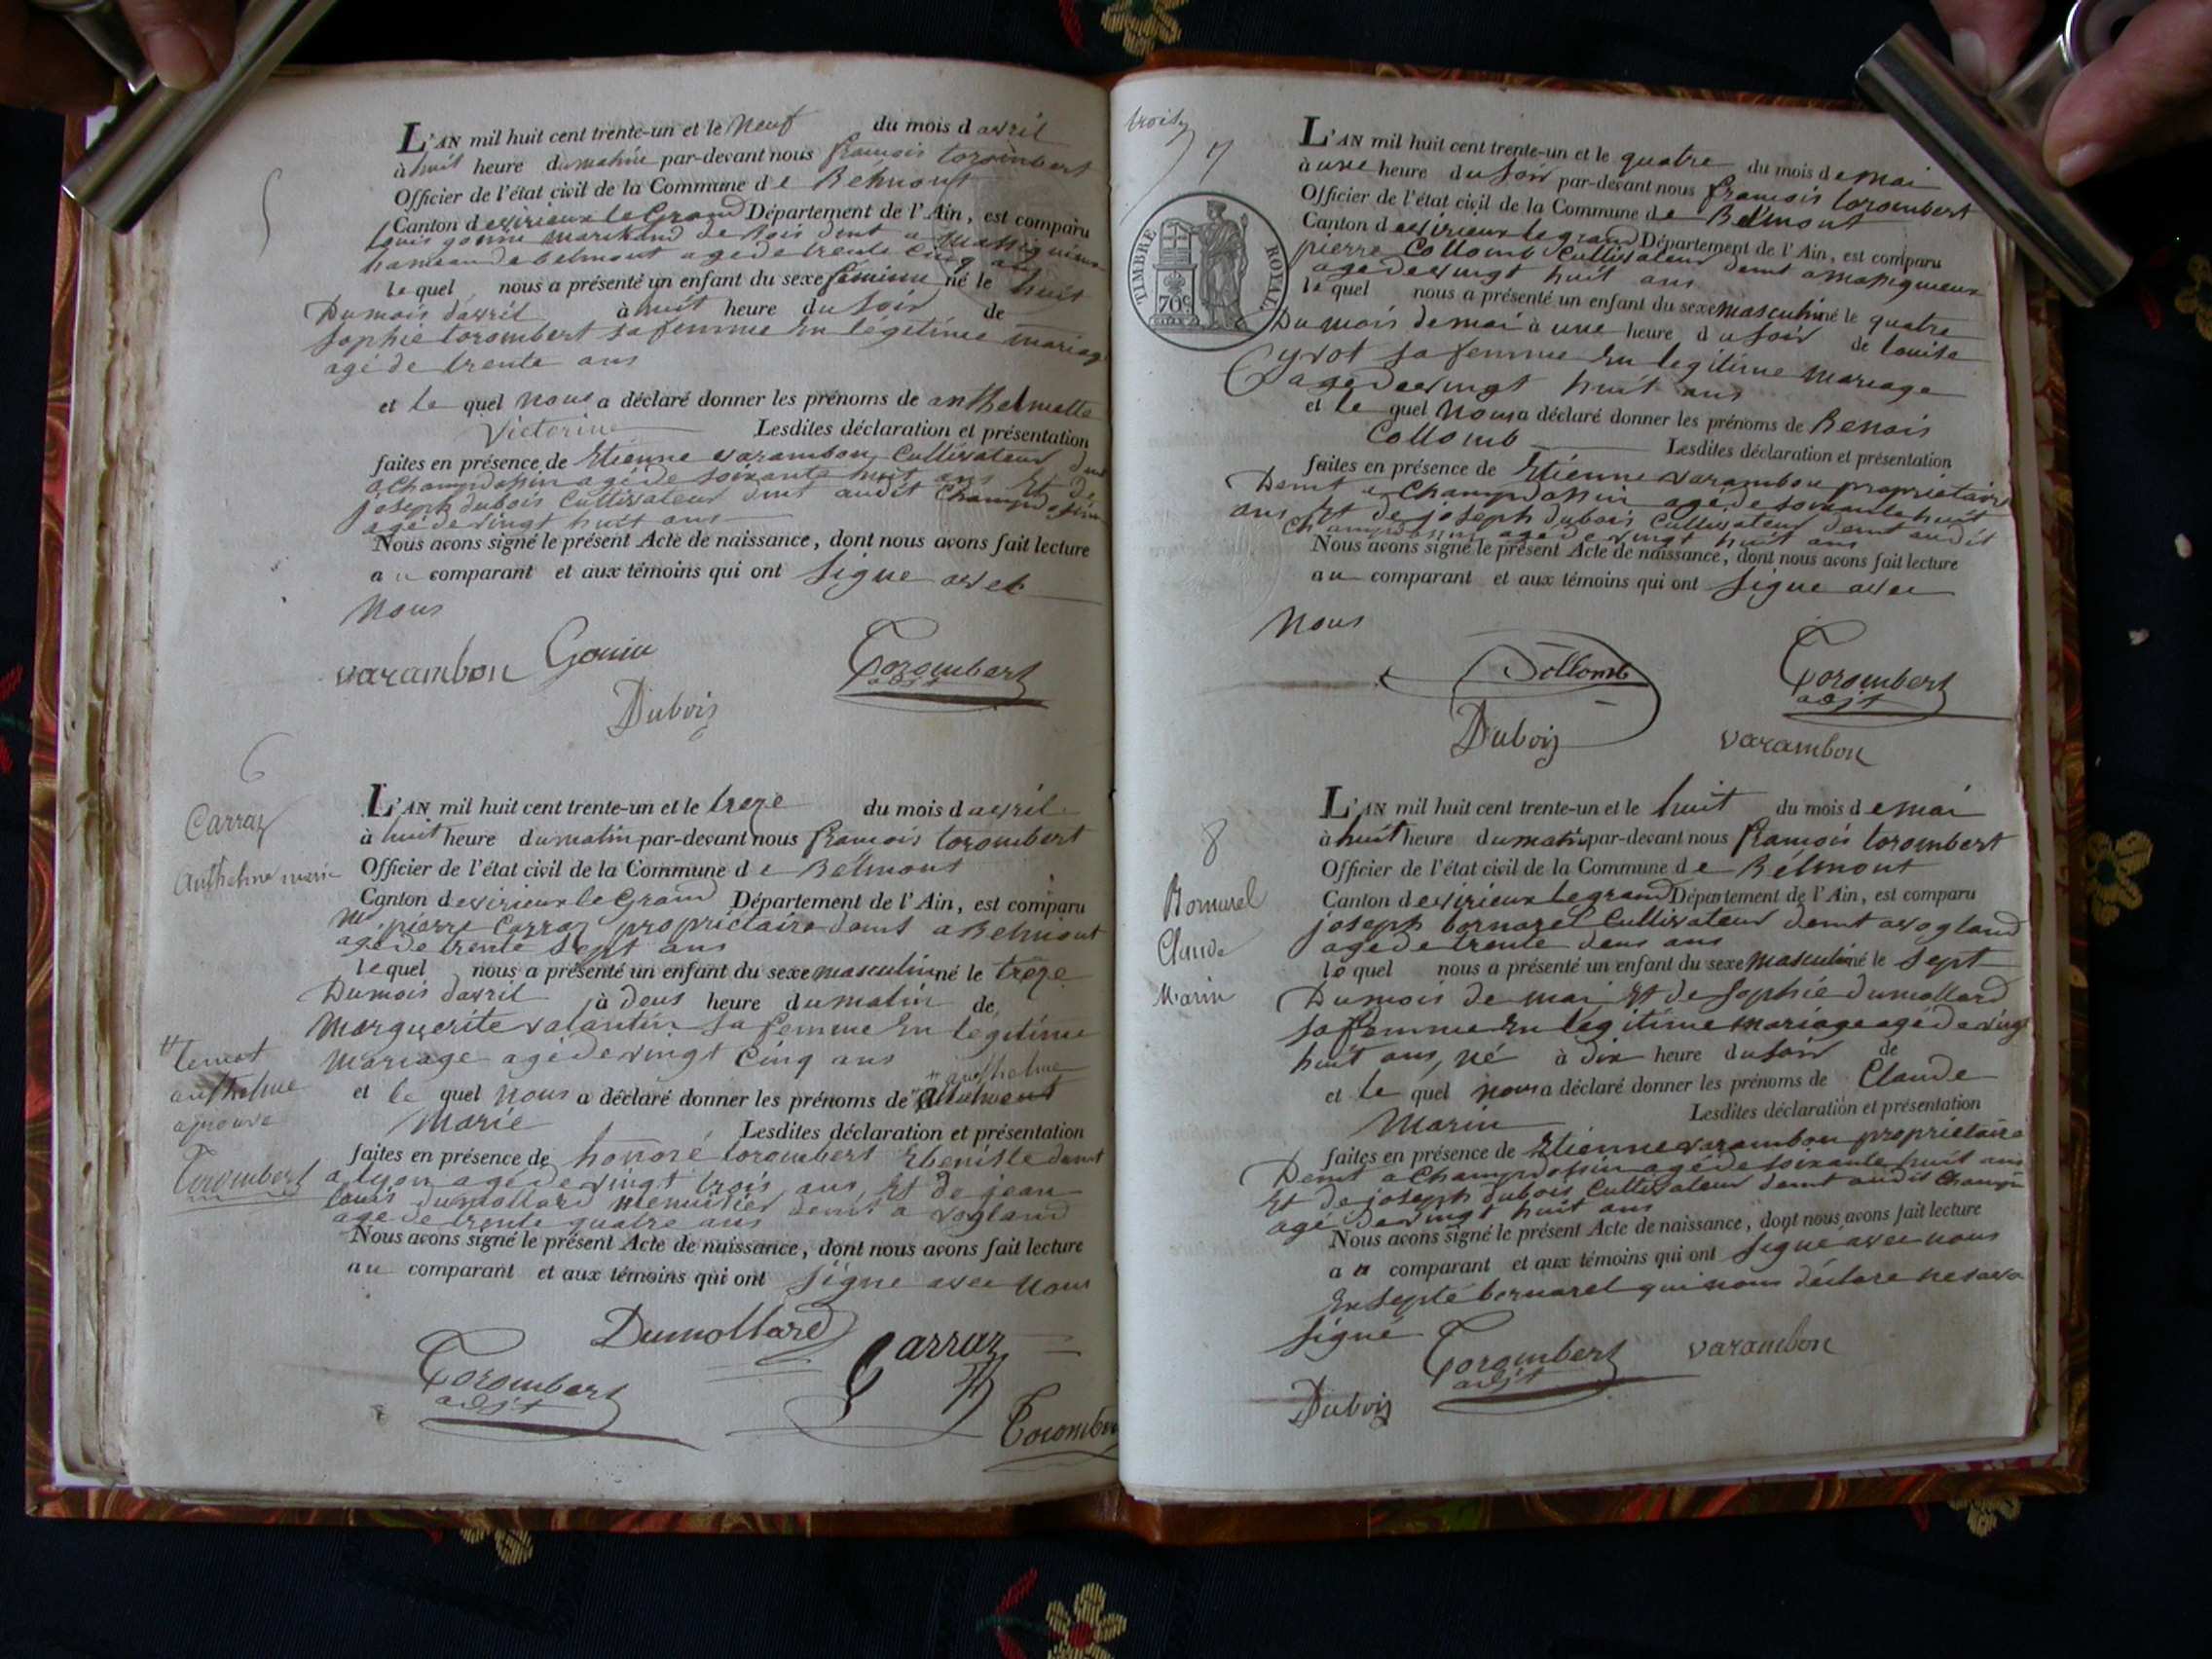 5
L'AN mil huit cent trente-un et le neuf du mois d avril
à huit heure du matin par-devant nous françois torombert
Officier de l'état civil de la Commune d e Belmont
Canton d evirieux le Grand Département de l'Ain, est comparu
Louis gonin marchand de bois demt a Massignieu
hameau de belmont agé de trente cinq ans
le quel nous a présenté un enfant du sexe féminin né le huit
Du mois davril à huit heure du soir de
Sophie torombert sa femme En légitime mariage
agé de trente ans
et le quel nous a déclaré donner les prénoms de anthelmette
Victorine Lesdites déclaration et présentation
faites en présence de Etienne varambon Cultivateur demt
a Champdossin agé de soixante huit ans Et de
joseph dubois Cultivateur demt audit Champdossin
agé de vingt huit ans
Nous avons signé le présent Acte de naissance, dont nous avons fait lecture
a u comparant et aux témoins qui ont signe avec
Nous
varambon Gonin Torombert
adjt
Dubois
6
Carraz
Anthelme marie
L'AN mil huit cent trente-un et le treze du mois d avril
à huit heure du matin par-devant nous françois torombert
Officier de l'état civil de la Commune d e Belmont
Canton d evirieux le Grand Département de l'Ain, est comparu
Mr pierre Carraz propriétaire demt a Belmont
agé de trente sept ans
le quel nous a présenté un enfant du sexe masculin né le treze
Du mois davril à deus heure du matin de
Marguerite valantin sa femme En légitime
Mariage agé de vingt Cinq ans
anthelme
et le quel nous a déclaré donner les prénoms de
Marie Lesdites déclaration et présentation
anthelme
aprouvé
Torombert
faites en présence de honoré torombert Ebeniste demt
a lyon agé de vingt trois ans, Et de jean
Louis dumollard menuisier demt a vogland
agé de trente quatre ans
Nous avons signé le présent Acte de naissance, dont nous avons fait lecture
au comparant et aux témoins qui ont signe avec nous
Dumollard
Carraz
Torombert
adjt
Torombert
trois
7
TIMBRE ROYAL
70 c.
L'AN mil huit cent trente-un et le quatre du mois d emai
à une heure du soir par-devant nous françois torombert
Officier de l'état civil de la Commune d e Belmont
Canton d evirieux le grand Département de l'Ain, est comparu
pierre Collomb Cultivateur demt a massignieux
agé de vingt huit ans
le quel nous a présenté un enfant du sexe masculin né le quatre
Du mois demai à une heure d u soir de louise
Cyvot sa femme En legitime mariage
agé de vingt huit ans
et le quel nous a déclaré donner les prénoms de Benois
Collomb Lesdites déclaration et présentation
faites en présence de Etienne varambon propriétaire
Demt a Champdossin agé de soixante huit
ans Et de joseph dubois Cultivateur demt audit
Champdossin agé de vingt huit ans
Nous avons signé le présent Acte de naissance, dont nous avons fait lecture
au comparant et aux témoins qui ont signe avec
Nous
Collomb
Torombert
adjt
Dubois
varambon
8
Bornarel
Claude
Marin
L'AN mil huit cent trente-un et le huit du mois d emai
à huit heure du matin par-devant nous françois torombert
Officier de l'état civil de la Commune d e Belmont
Canton d evirieux le grand Département de l'Ain, est comparu
joseph bornarel Cultivateur demt a vogland
agé de trente deus ans
le quel nous a présenté un enfant du sexe masculin né le sept
Du mois de mai Et de Sophie dumollard
sa femme En legitime mariage agé de vingt
huit ans, né à dix heure du soir de
et le quel nous a déclaré donner les prénoms de Claude
Marin Lesdites déclaration et présentation
faites en présence de Etienne varambon propriétaire
Demt a Champdossin agé de soixante huit ans
Et de joseph dubois Cultivateur demt audit Champn
agé de vingt huit ans
Nous avons signé le présent Acte de naissance, dont nous avons fait lecture
a u comparant et aux témoins qui ont signé avec nous
Exsepté bornarel qui nous déclare ne savo
signé
Torombert
adjt
varambon
Dubois